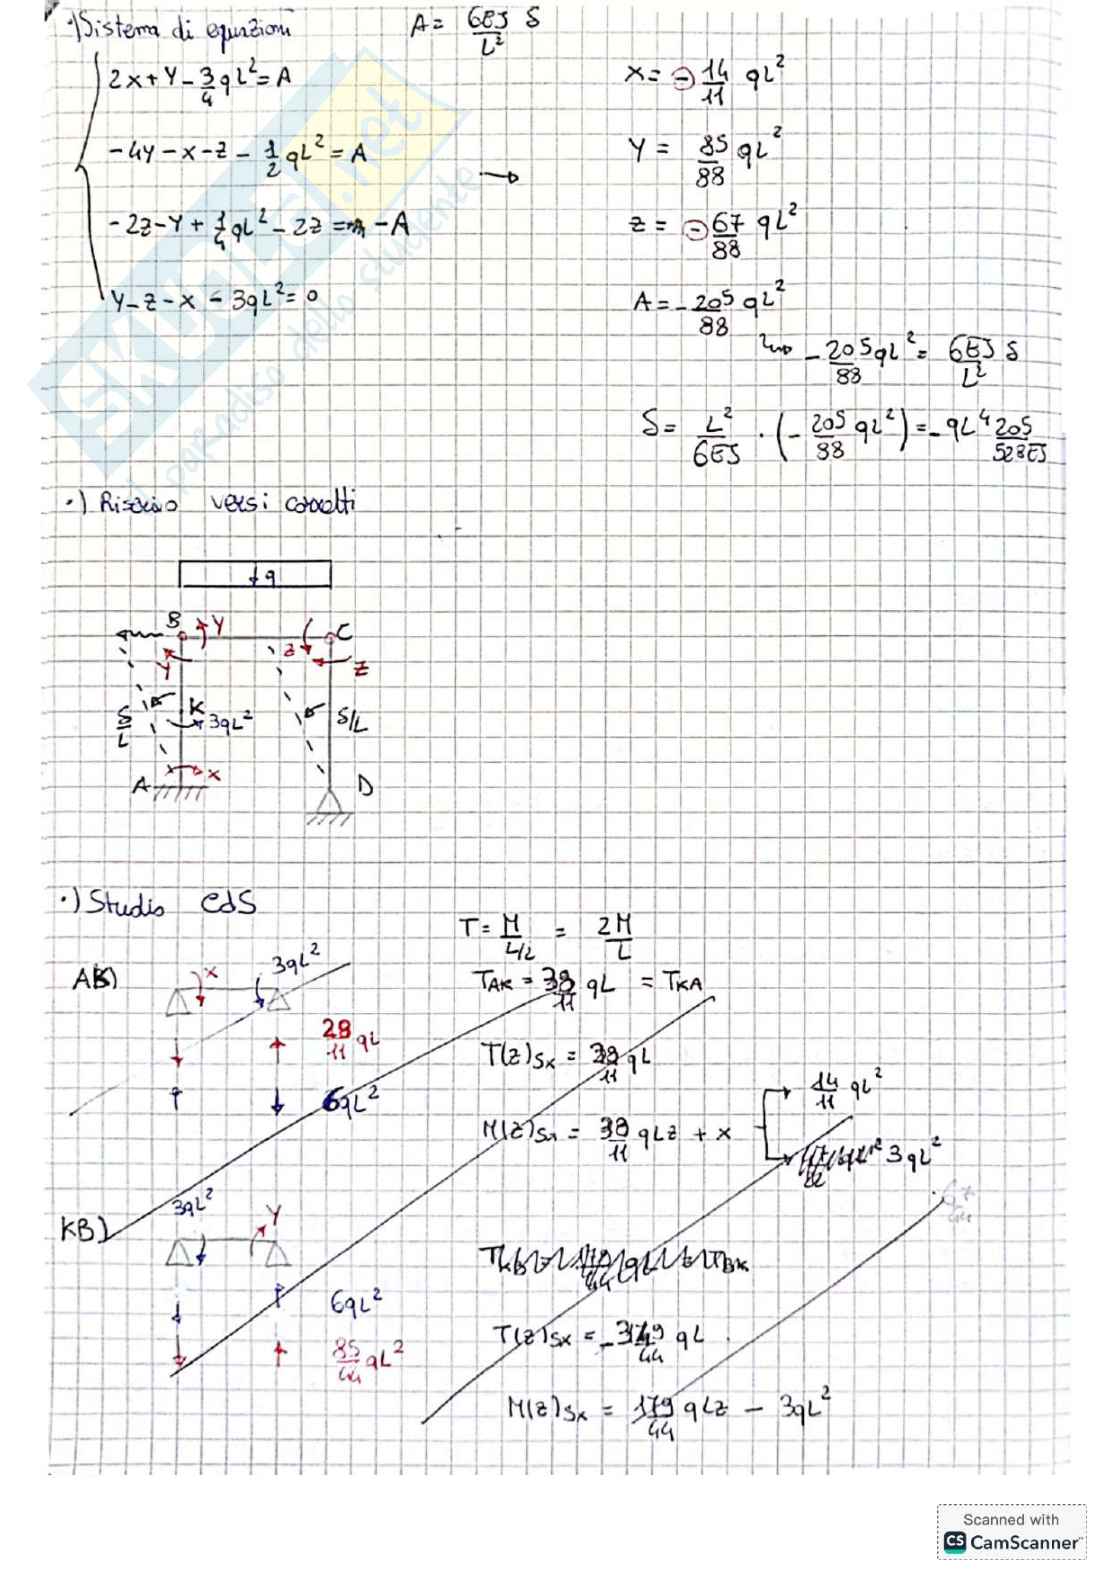 ·) Sistema di equazioni A = 6EJ δ / L²
2x + Y - 3/4 qL² = A
-4Y - x - z - 1/2 qL² = A
-2z - Y + 1/4 qL² - 2z = -A
Y - z - x - 3qL² = 0
→
x = - 14/11 qL²
Y = 85/88 qL²
z = - 67/88 qL²
A = - 205/88 qL²
- 205/88 qL² = 6EJ δ / L²
δ = L²/6EJ · (- 205/88 qL²) = - qL⁴ 205/528EJ
·) Riscrivo versi corretti
q
B Y z C
Y z
δ/L K 3qL² δ/L
A x D
·) Studio CdS
T = M / L/2 = 2M / L
AK) x 3qL²
TAK = 38/11 qL = TKA
28/11 qL
T(z)sx = 38/11 qL
6qL²
M(z)sx = 38/11 qLz + x
14/11 qL²
3qL²
KB) 3qL² Y
6qL²
85/44 qL²
T(z)sx = - 349/44 qL
M(z)sx = 179/44 qLz - 3qL²
SKUOLA.net
il paradiso dello studente
Scanned with
CS CamScanner